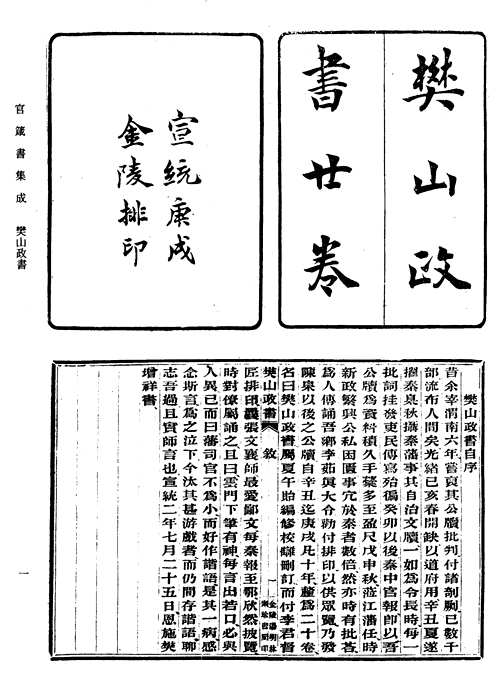 樊山政
書廿卷
宣統庚戌
金陵排印
官箴書集成 樊山政書
樊山政書自序
昔余宰渭南六年嘗裒其公牘批判付諸剞劂已數千
部流布人間矣光緒己亥春開缺以道府用辛丑夏遂
擢秦臬秋攝秦藩事其自治文牘一如為令長時每一
批詞挂發吏民傳寫殆徧癸卯以後秦中官報即以吾
公牘為資料積久手稾多至盈尺戊申秋蒞江藩任時
新政繁興公私困匱事宂於秦者數倍然亦時有批荅
為人傳誦吾鄉李茹與大令勸付排印以供眾覽乃發
陳稾以後之公牘自辛丑迄庚戌凡十年釐為二十卷
名曰樊山政書屬夏午詒編修校讎刪訂而付李君督
樊山政書 敘 一
金陵湯明林
聚珍書局印
匠排印曩張文襄師最愛鄙文每秦報至鄂欣然披覽
時對僚屬誦之且曰雲門下筆有神每言出若口必與
人異已而曰藩司官不為小而好作諧語是其一病感
念斯言為之泣下今汰其甚游戲者而仍間存諧語聊
志吾過且實師言也宣統二年七月二十五日恩施樊
增祥書
一